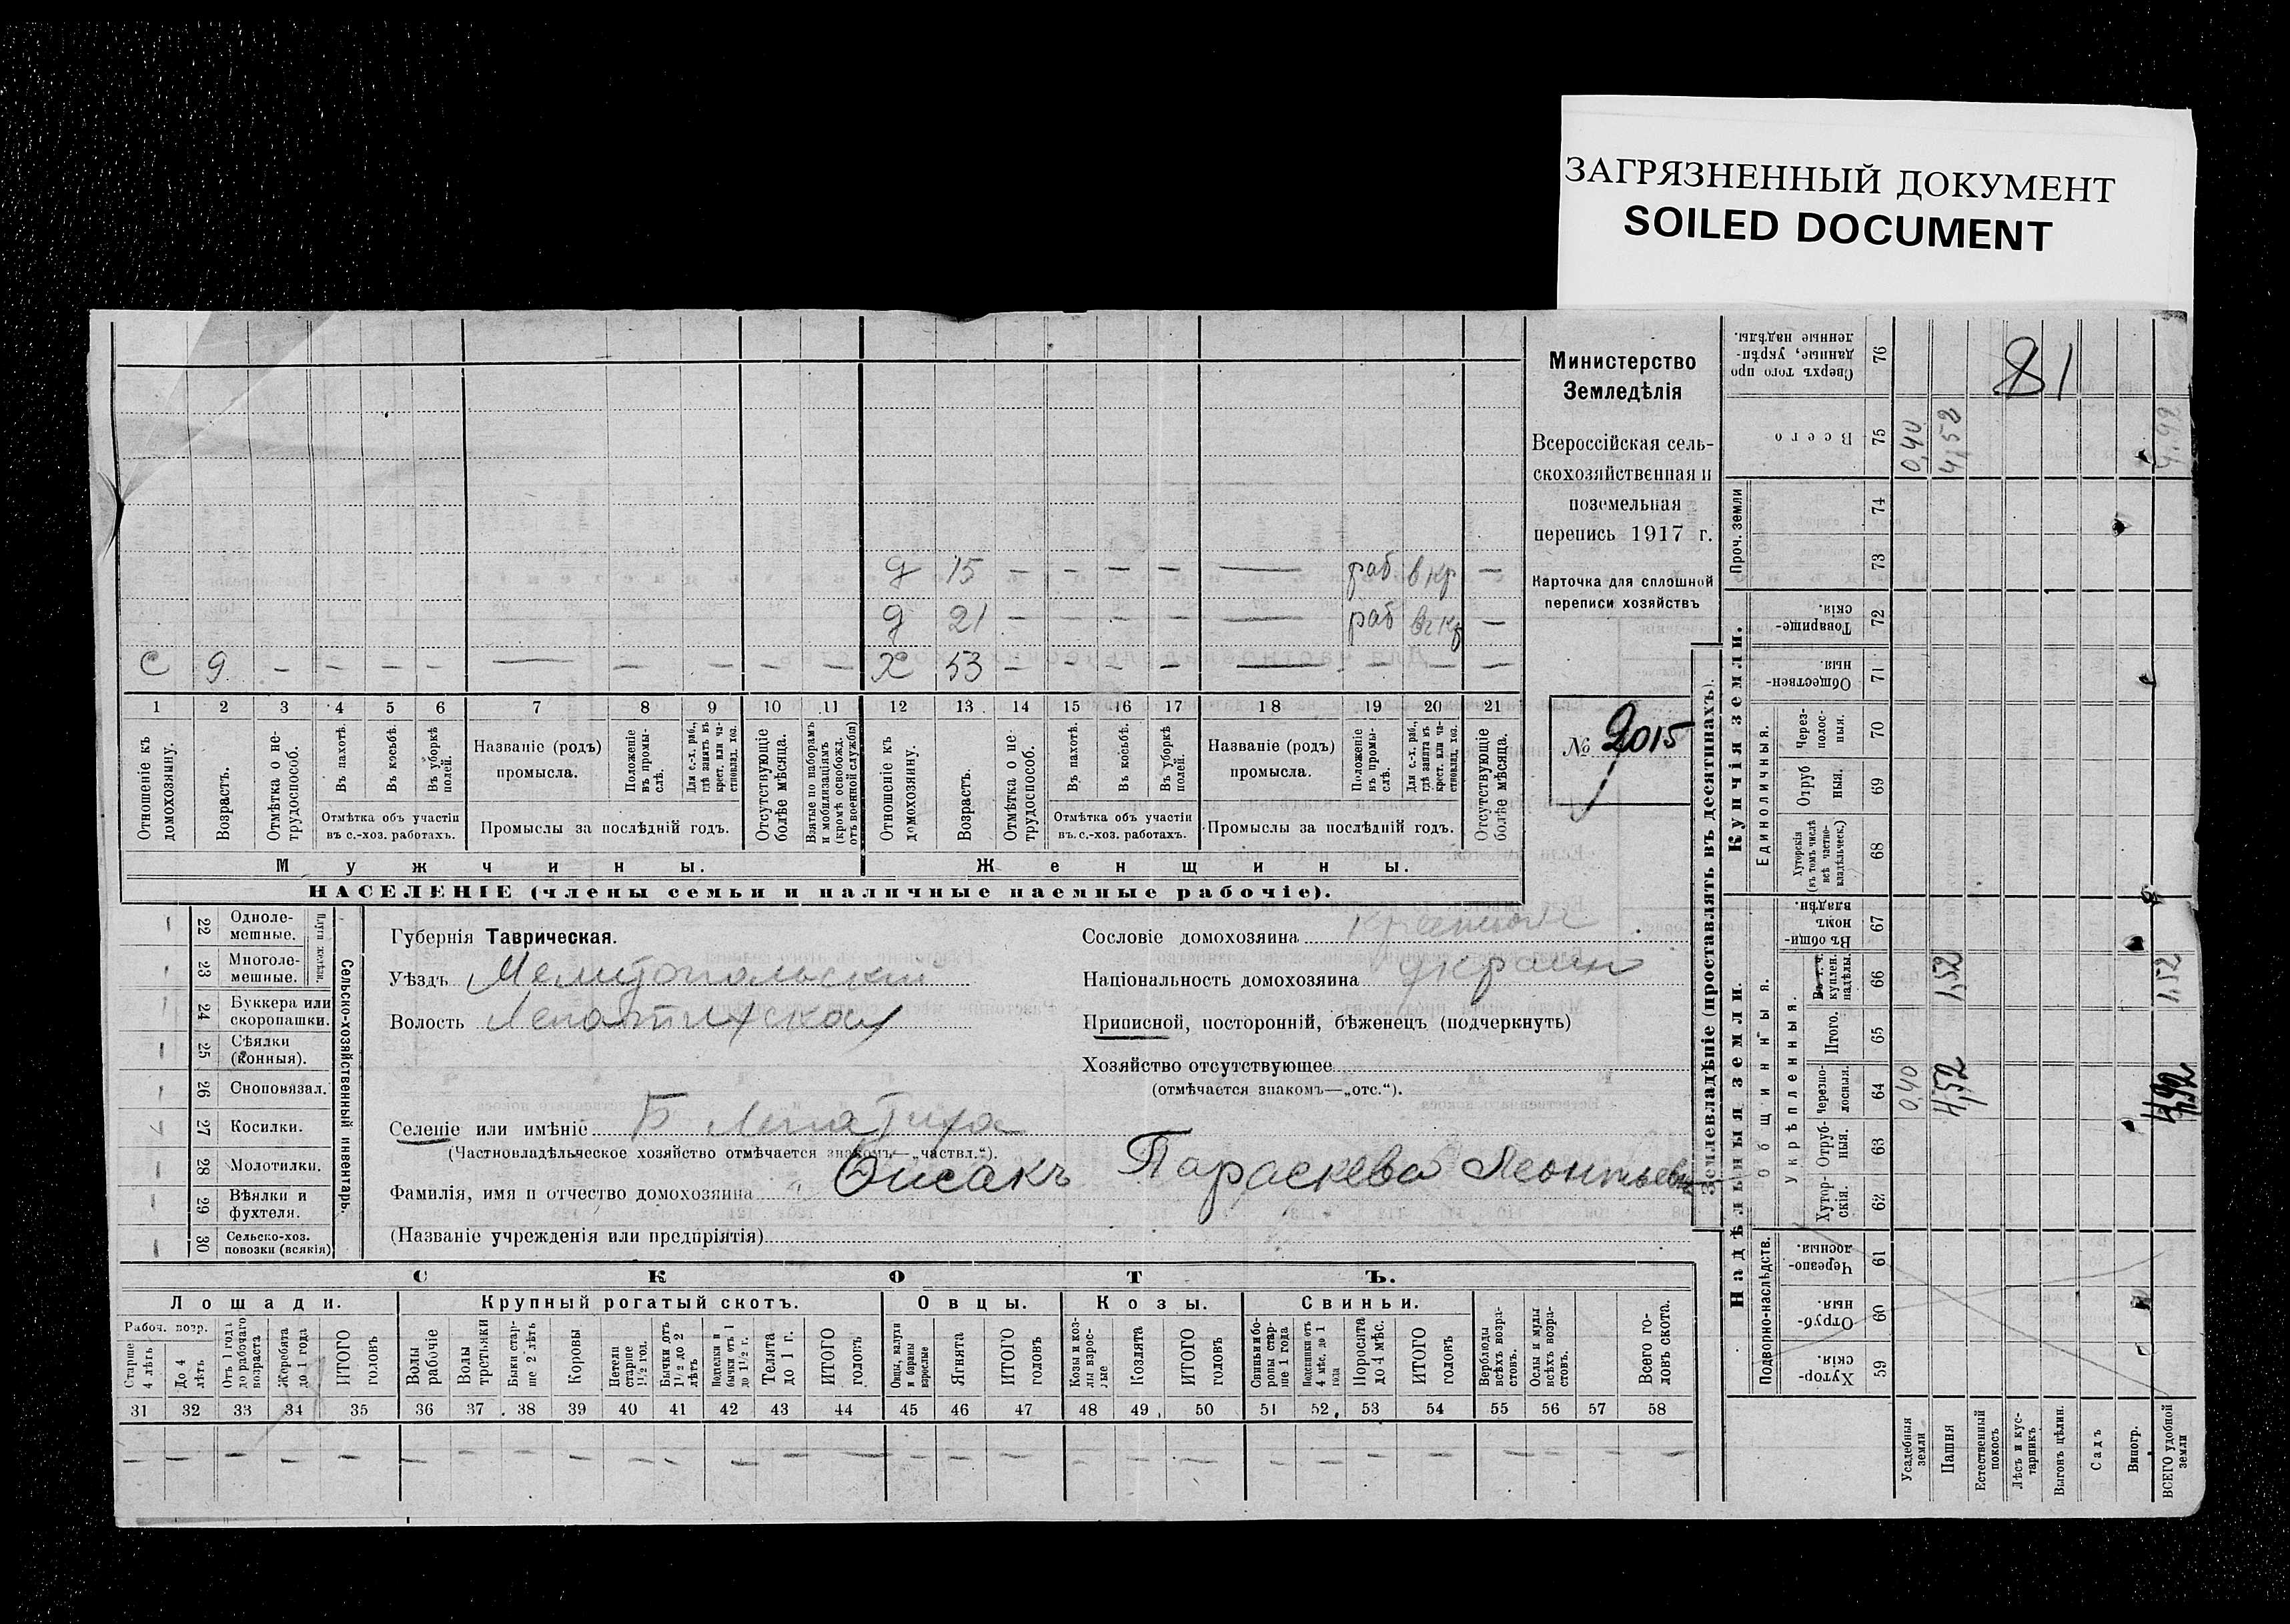 ЗАГРЯЗНЕННЫЙ ДОКУМЕНТ
SOILED DOCUMENT
81
Министерство
Земледѣлія
Всероссійская сель-
скохозяйственная и
поземельная
перепись 1917 г.
Карточка для сплошной
переписи хозяйствъ
№ 2015
д 15 — — — — — раб в кр —
д 21 — — — — — раб —
с 9 — — — — — — — — — х 53 — — — — — — — —
1 2 3 4 5 6 7 8 9 10 11 12 13 14 15 16 17 18 19 20 21
Отношеніе къ домохозяину.
Возрастъ.
Отмѣтка о не-трудоспособ.
Въ пахотѣ.
Въ косьбѣ.
Въ уборкѣ полей.
Отмѣтка объ участіи
въ с.-хоз. работахъ.
Названіе (родъ)
промысла.
Положеніе въ промы-слѣ.
Для с.-х. раб., гдѣ занятъ въ крест. или ча-стновлад. хоз.
Промыслы за послѣдній годъ.
Отсутствующіе болѣе мѣсяца.
Взятые по наборамъ и мобилизаціямъ (кромѣ освобожд. отъ военной службы)
Отношеніе къ домохозяину.
Возрастъ.
Отмѣтка о не-трудоспособ.
Въ пахотѣ.
Въ косьбѣ.
Въ уборкѣ полей.
Отмѣтка объ участіи
въ с.-хоз. работахъ.
Названіе (родъ)
промысла.
Положеніе въ промы-слѣ.
Для с.-х. раб., гдѣ занята въ крест. или ча-стновлад. хоз.
Промыслы за послѣдній годъ.
Отсутствующіе болѣе мѣсяца.
Мужчины. Женщины.
НАСЕЛЕНІЕ (члены семьи и наличные наемные рабочіе).
Сельско-хозяйственный инвентарь.
22 Одноле-мешные.
23 Многоле-мешные.
24 Буккера или скоропашки.
25 Сѣялки (конныя).
26 Сноповязал.
27 Косилки.
28 Молотилки.
29 Вѣялки и фухтеля.
30 Сельско-хоз. повозки (всякія)
Губернія Таврическая.
Уѣздъ Мелитопольский
Волость Лепатихская
Селеніе или имѣніе Б Лепатиха
(Частновладѣльческое хозяйство отмѣчается знакомъ—„частвл.“).
Фамилія, имя и отчество домохозяина Онсакъ Параскева Леонтьевна
(Названіе учрежденія или предпріятія)
Сословіе домохозяина
Національность домохозяина украин
Приписной, посторонній, бѣженецъ (подчеркнуть)
Хозяйство отсутствующее
(отмѣчается знакомъ—„отс.“).
СКОТЪ.
Лошади. Крупный рогатый скотъ. Овцы. Козы. Свиньи.
Рабоч. возр.
Старше 4 лѣтъ
До 4 лѣтъ
Отъ 1 года до рабочаго возраста
Жеребята до 1 года
ИТОГО головъ
Волы рабочіе
Волы третьяки
Быки стар-ше 2 лѣтъ
Коровы
Нетели старше 1½ год.
Бычки отъ 1½ до 2 лѣтъ
Телята до 1 г.
ИТОГО головъ
Овцы, валухи и бараны взрослые
Ягнята
ИТОГО головъ
Козы и коз-лы взрос-лые
Козлята
ИТОГО головъ
Свиньи и бо-ровы стар-ше 1 года
Подсвинки отъ 4 мѣс. до 1 года
Поросята до 4 мѣс.
ИТОГО головъ
Верблюды всѣхъ возра-стовъ.
Ослы и мулы всѣхъ возра-стовъ.
Всего го-ловъ скота.
31 32 33 34 35 36 37 38 39 40 41 42 43 44 45 46 47 48 49 50 51 52 53 54 55 56 57 58
Землевладѣніе (проставлять въ десятинахъ).
Надѣльныя земли. Купчія земли. Проч. земли
Подворно-наслѣдств.
Общинныя.
Укрѣпленныя.
Единоличныя.
59 Хутор-скія.
60 Отруб-ныя.
61 Черезпо-лосныя.
62 Хутор-скія.
63 Отруб-ныя.
64 Черезпо-лосныя. 0,40 4,52
65 Итого.
66 Въ т. ч. куплен. надѣлы. 1,52 1,52
67 Въ общи-номъ владѣн.
68 Хуторскія (въ томъ числѣ всѣ частно-владѣльческ.)
69 Отруб ныя.
70 Через-полос-ныя.
71 Обществен-ныя.
72 Товарище-скія.
73
74
75 Всего 0,40 4,52 4,92
76 Сверхъ того про данные, укрѣп-ленные надѣлы.
Усадебныя земли
Пашня
Естественный покосъ
Лѣсъ и кус-тарникъ
Выгонъ цѣлин.
Садъ
Виногр.
ВСЕГО удобной земли